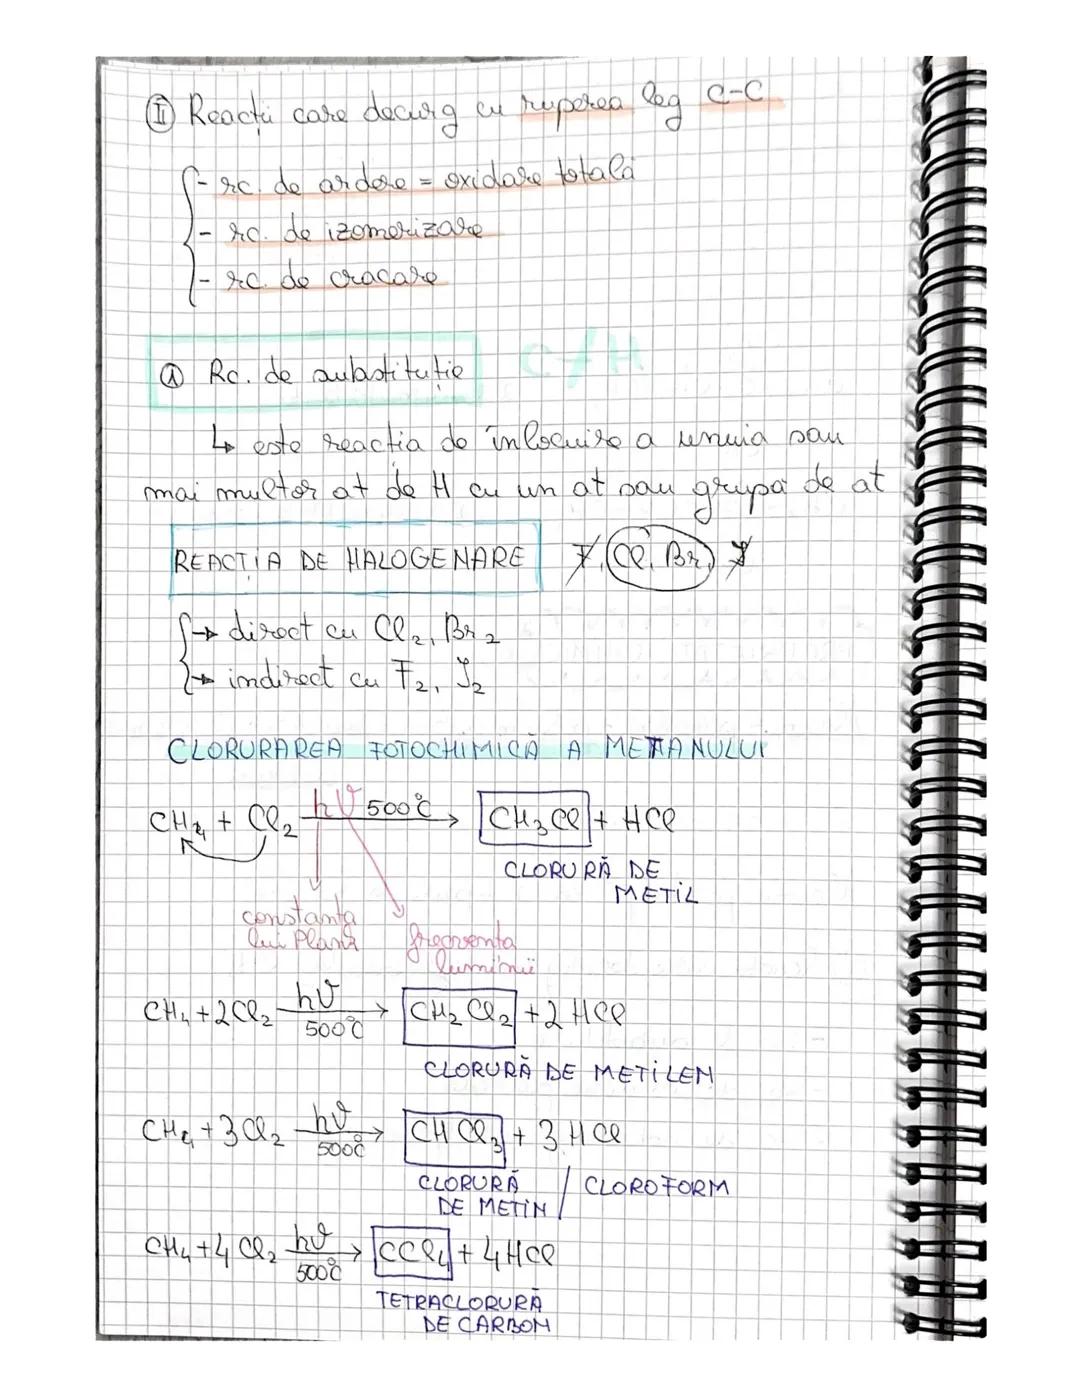 II Reacții care decurg cu ruperea leg C-C
- rc. de ardere = oxidare totală
- rc. de izomerizare
- rc. de cracare
① Rc. de substituție C/H
↳ este reacția de înlocuire a unuia sau
mai multor at de H cu un at sau grupă de at
REACȚIA DE HALOGENARE F, Cl, Br, I
→ direct cu Cl₂, Br₂
→ indirect cu F₂, I₂
CLORURAREA FOTOCHIMICĂ A METANULUI
CH₄ + Cl₂ hν 500°C → CH₃Cl + HCl
CLORURĂ DE
METIL
constanta
lui Plank
frecvența
luminii
CH₄ + 2Cl₂ hν 500°C → CH₂Cl₂ + 2HCl
CLORURĂ DE METILEN
CH₄ + 3Cl₂ hν 500°C → CHCl₃ + 3HCl
CLORURĂ DE METIN / CLOROFORM
CH₄ + 4Cl₂ hν 500°C → CCl₄ + 4HCl
TETRACLORURĂ
DE CARBON